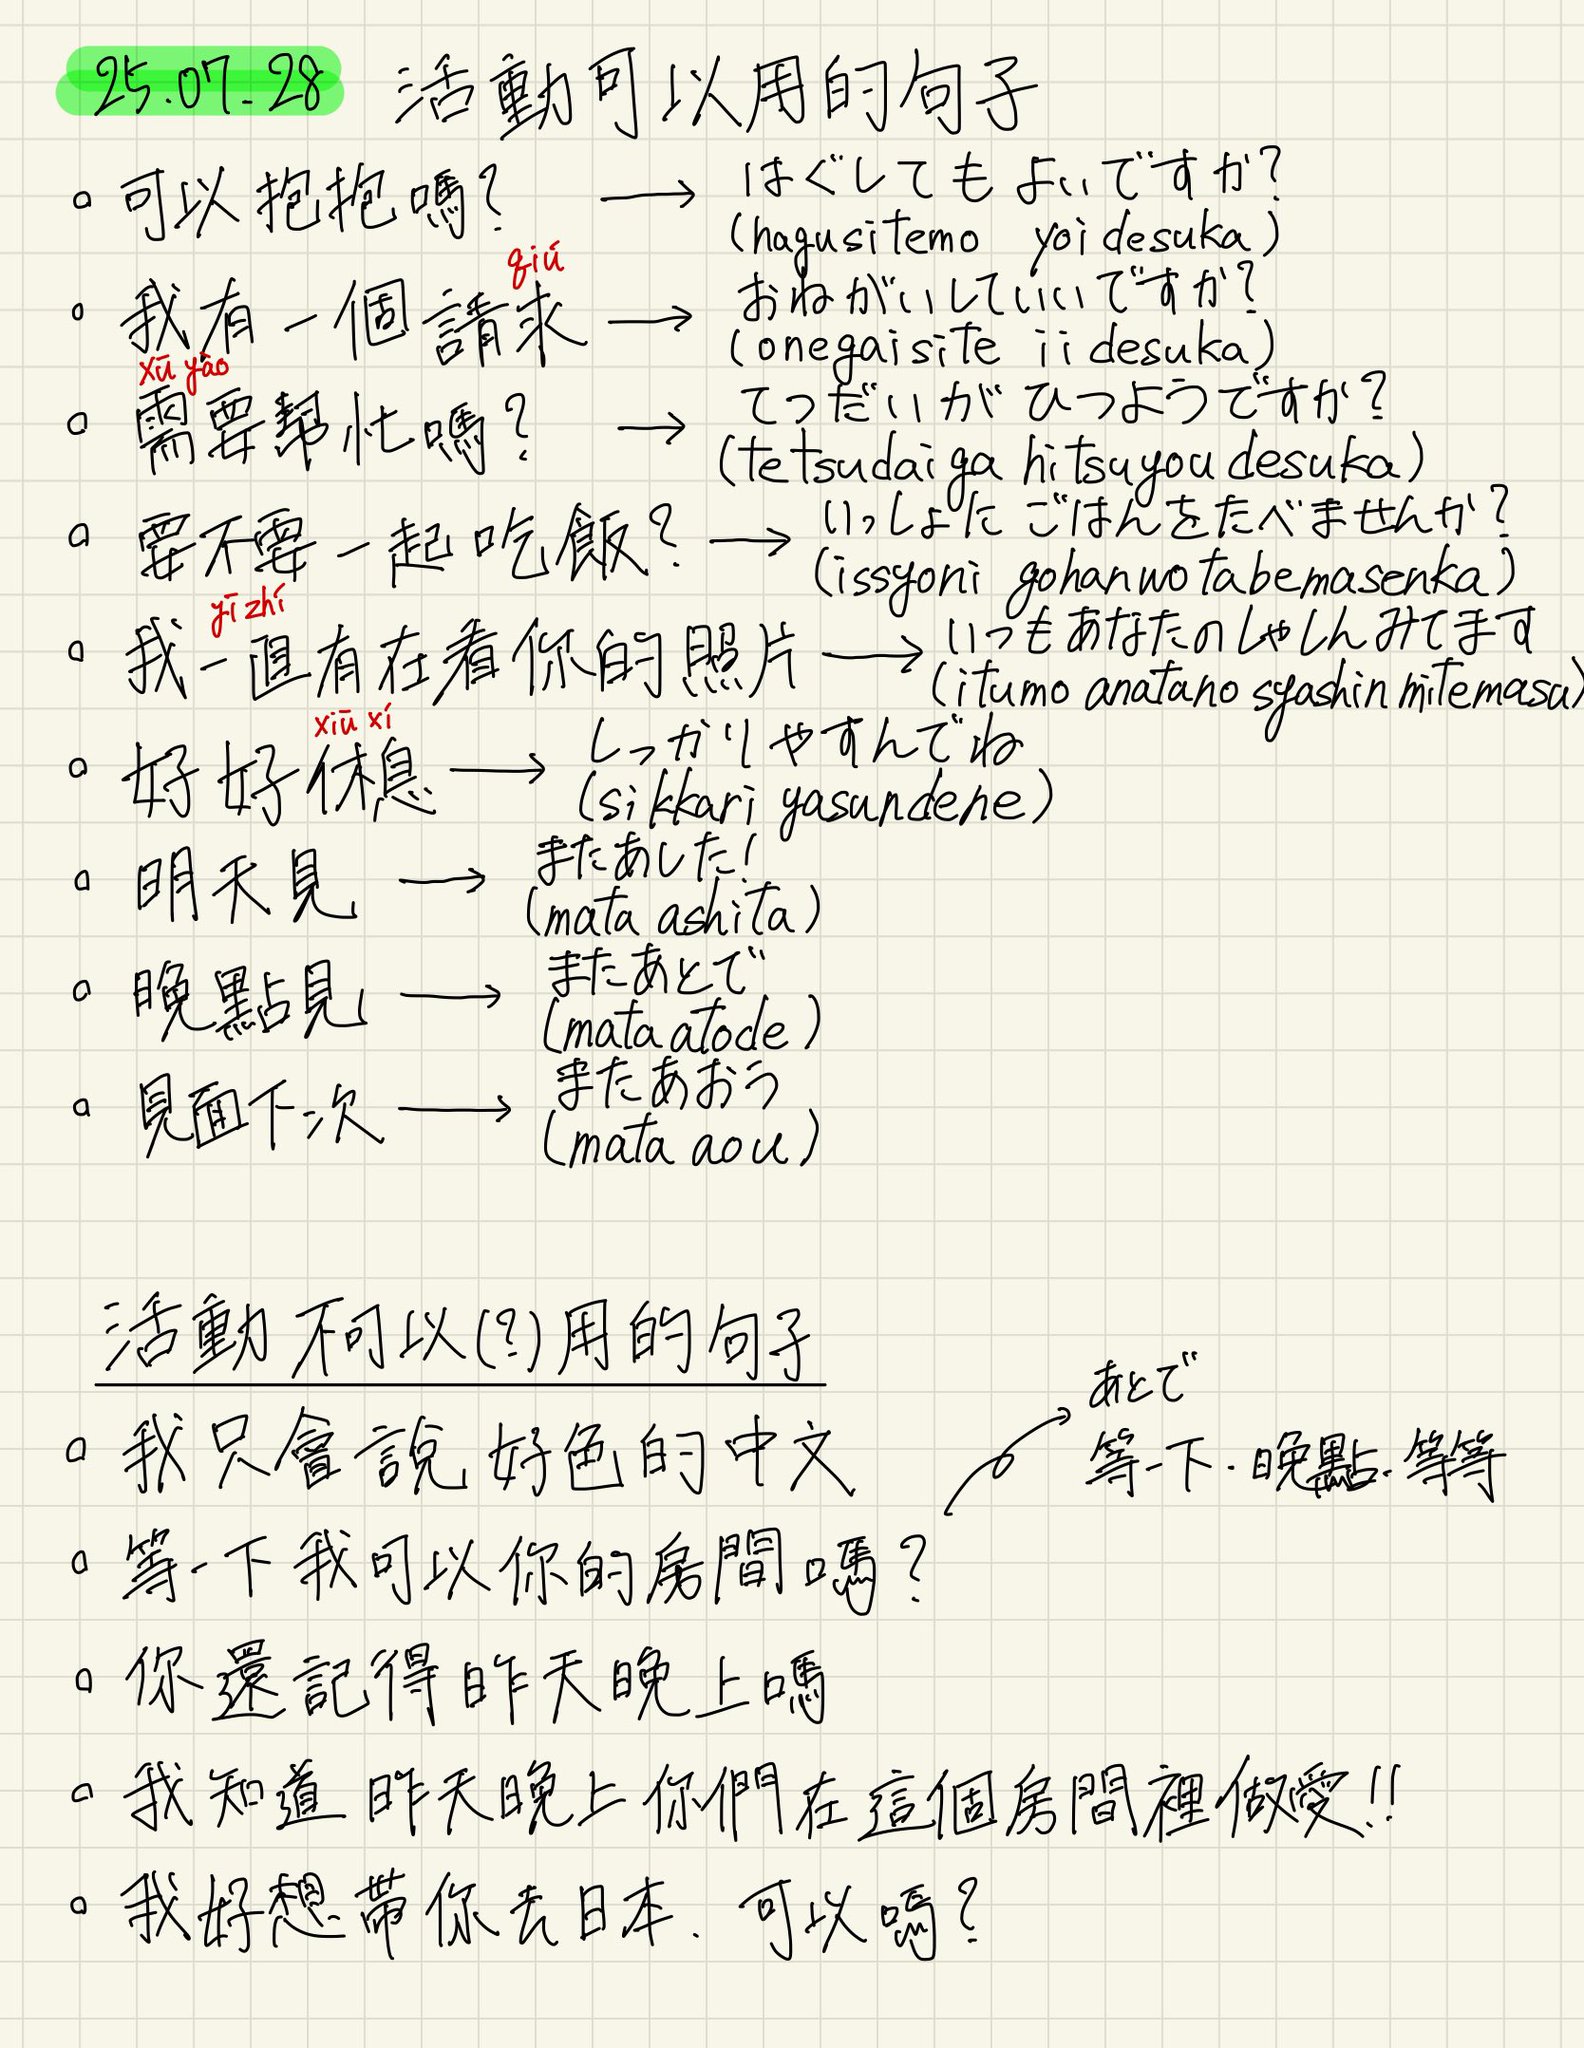 25.07.28 活動可以用的句子
可以抱抱嗎? → はぐしてもよいですか?
(hagusitemo yoi desuka)
qiú
我有一個請求 → おねがいしていいですか?
(onegaisite ii desuka)
xū yào
需要幫忙嗎? → てつだいがひつようですか?
(tetsudai ga hitsuyou desuka)
要不要一起吃飯? → いっしょにごはんをたべませんか?
(issyoni gohanwo tabemasenka)
yī zhí
我一直有在看你的照片 → いつもあなたのしゃしんみてます
(itumo anatano syashin mitemasu)
xiū xí
好好休息 → しっかりやすんでね
(sikkari yasundene)
明天見 → またあした!
(mata ashita)
晚點見 → またあとで
(mata atode)
見面下次 → またあおう
(mata aou)
活動不可以(?)用的句子
我只會說好色的中文
あとで
等一下.晚點.等等
等一下我可以你的房間嗎?
你還記得昨天晚上嗎
我知道昨天晚上你們在這個房間裡做愛!!
我好想帶你去日本.可以嗎?